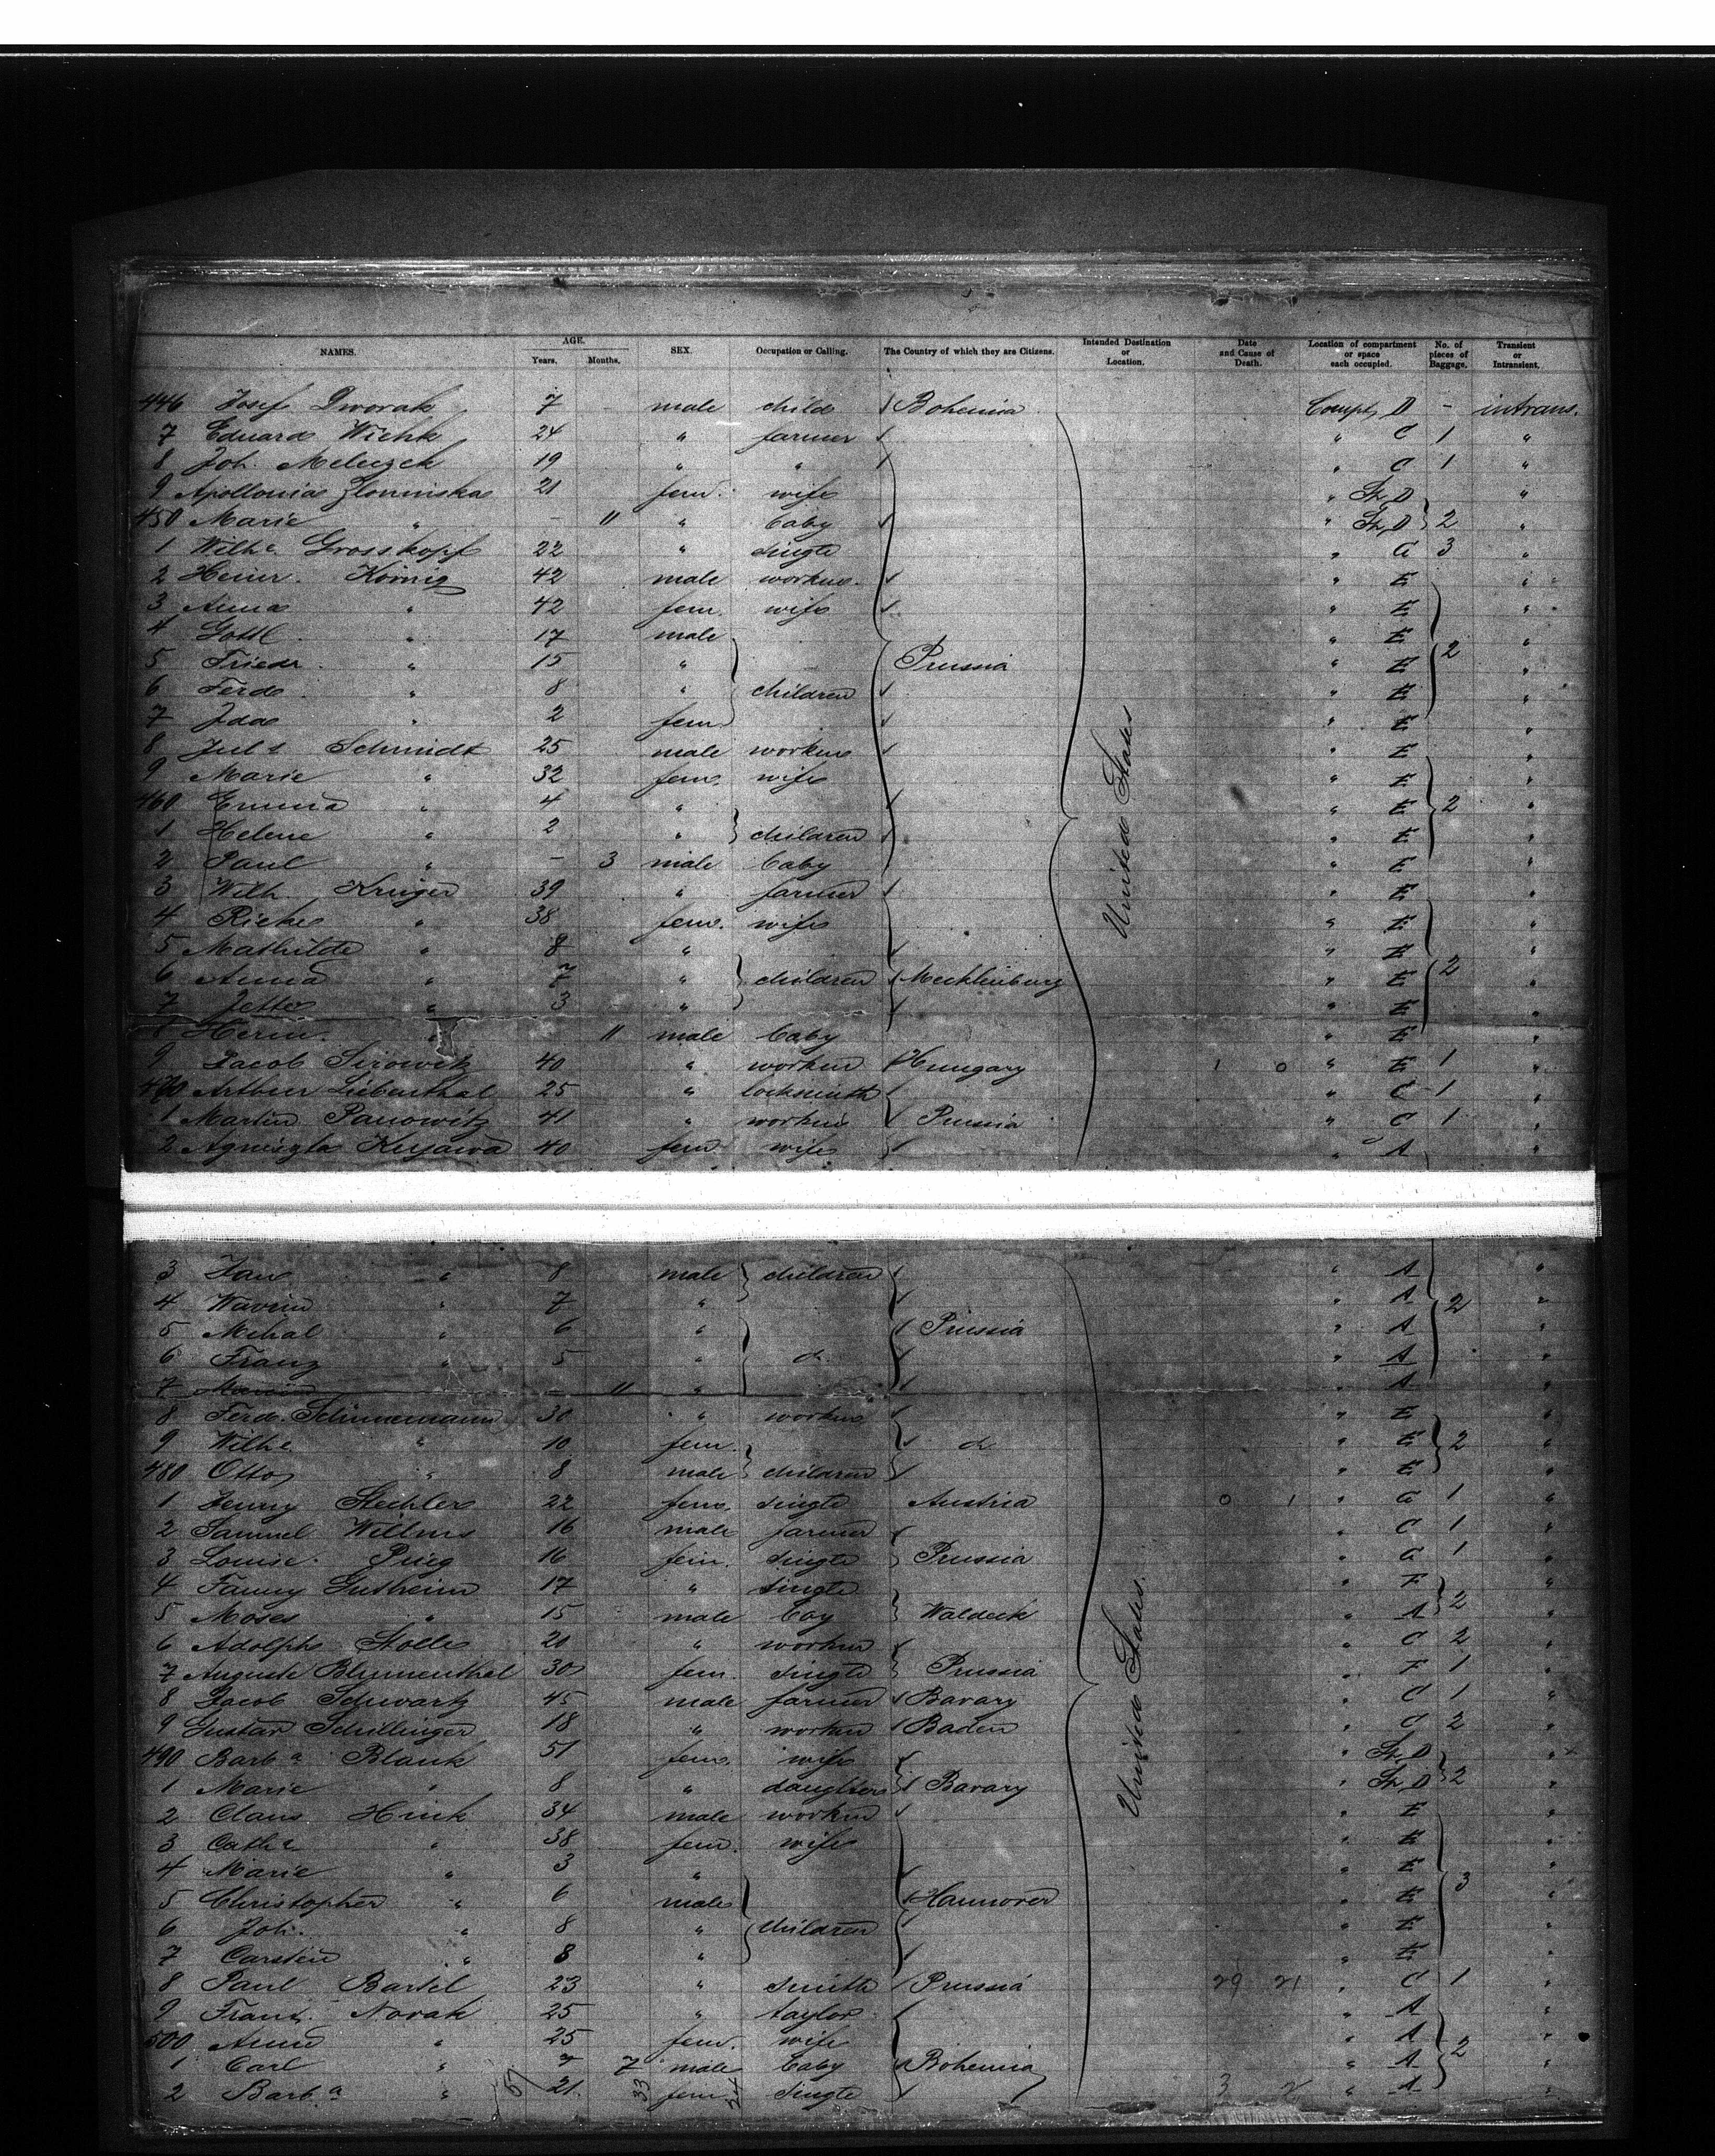 NAMES. AGE. Years. Months. SEX. Occupation or Calling. The Country of which they are Citizens. Intended Destination or Location. Date and Cause of Death. Location of compartment or space each occupied. No. of pieces of Baggage. Transient or Intransient.
446 Josef Dworak 7 male child Bohemia Compt, D - intrans.
7 Eduard Wichk 24 " farmer " C 1 "
8 Joh. 19 " " " C 1 "
9 Apollonia 21 fem. wife " St, D "
450 Marie " - 11 " baby " St, D 2 "
1 Wilhe Grosskopf 22 " single " G 3 "
2 Heinr. König 42 male workm. " E "
3 Anna " 42 fem. wife " E "
4 Gottl. " 17 male " E "
5 Friedr. " 15 " Prussia " E 2 "
6 Ferd. " 8 " children " E "
7 Ida " 2 fem. " E "
8 Juls Schmidt 25 male workm " E "
9 Marie " 32 fem. wife " E "
460 Emma " 4 " " E 2 "
1 Helene " 2 " children " E "
2 Paul " - 3 male baby " E "
3 Wilh. Krüger 39 " farmer " E "
4 Rieke " 38 fem. wife " E "
5 Mathilde " 8 " " E "
6 Anna " 7 " children Mecklinburg " E 2 "
7 Jette " 3 " " E "
8 Herm. " 11 male baby " E "
9 Jacob Sirowitz 40 " workm Hungary 1 0 " E 1 "
470 Arthur Liebenthal 25 " locksmith " C 1 "
1 Martin Panowitz 41 " workm Prussia " C 1 "
2 Agniszka Kujawa 40 fem wife " A "
United States
3 Jan " 8 male children " A "
4 Wavrin " 7 " " A 2 "
5 Mihal " 6 " Prussia " A "
6 Franz " 5 " d. " A "
7 - 11 " " A "
8 Ferd. Schünemann 30 " workm " E "
9 Wilhe " 10 fem. d. " E 2 "
480 Otto " 8 male children " E "
1 Jenny Stechler 22 fem. single Austria 0 1 " G 1 "
2 Samuel Willms 16 male farmer " C 1 "
3 Louise Prieg 16 fem. single Prussia " G 1 "
4 Fanny Gutheim 17 " single " F "
5 Moses " 15 male boy Waldeck " A 2 "
6 Adolph Stolle 20 " workm " C 2 "
7 Auguste Blumenthal 30 fem. single Prussia " F 1 "
8 Jacob Schwartz 45 male farmer Bavary " C 1 "
9 Gustav Schillinger 18 " workm Baden " C 2 "
490 Barba Blank 51 fem. wife " St, D "
1 Marie " 8 " daughters Bavary " St, D 2 "
2 Claus Hink 34 male workm " E "
3 Cathe " 38 fem. wife " E "
4 Marie " 3 " " E "
5 Christopher " 6 male Hannover " E 3 "
6 Joh. " 8 " children " E "
7 Carsten " 8 " " E "
8 Paul Bartel 23 " smith Prussia 29 21 " C 1 "
9 Franz Novak 25 " taylor " A "
500 Anna " 25 fem. wife " A "
1 Carl " - 7 male baby Bohemia " A 2 "
2 Barba " 21 fem. single 3 " A "
United States.
51 33 24